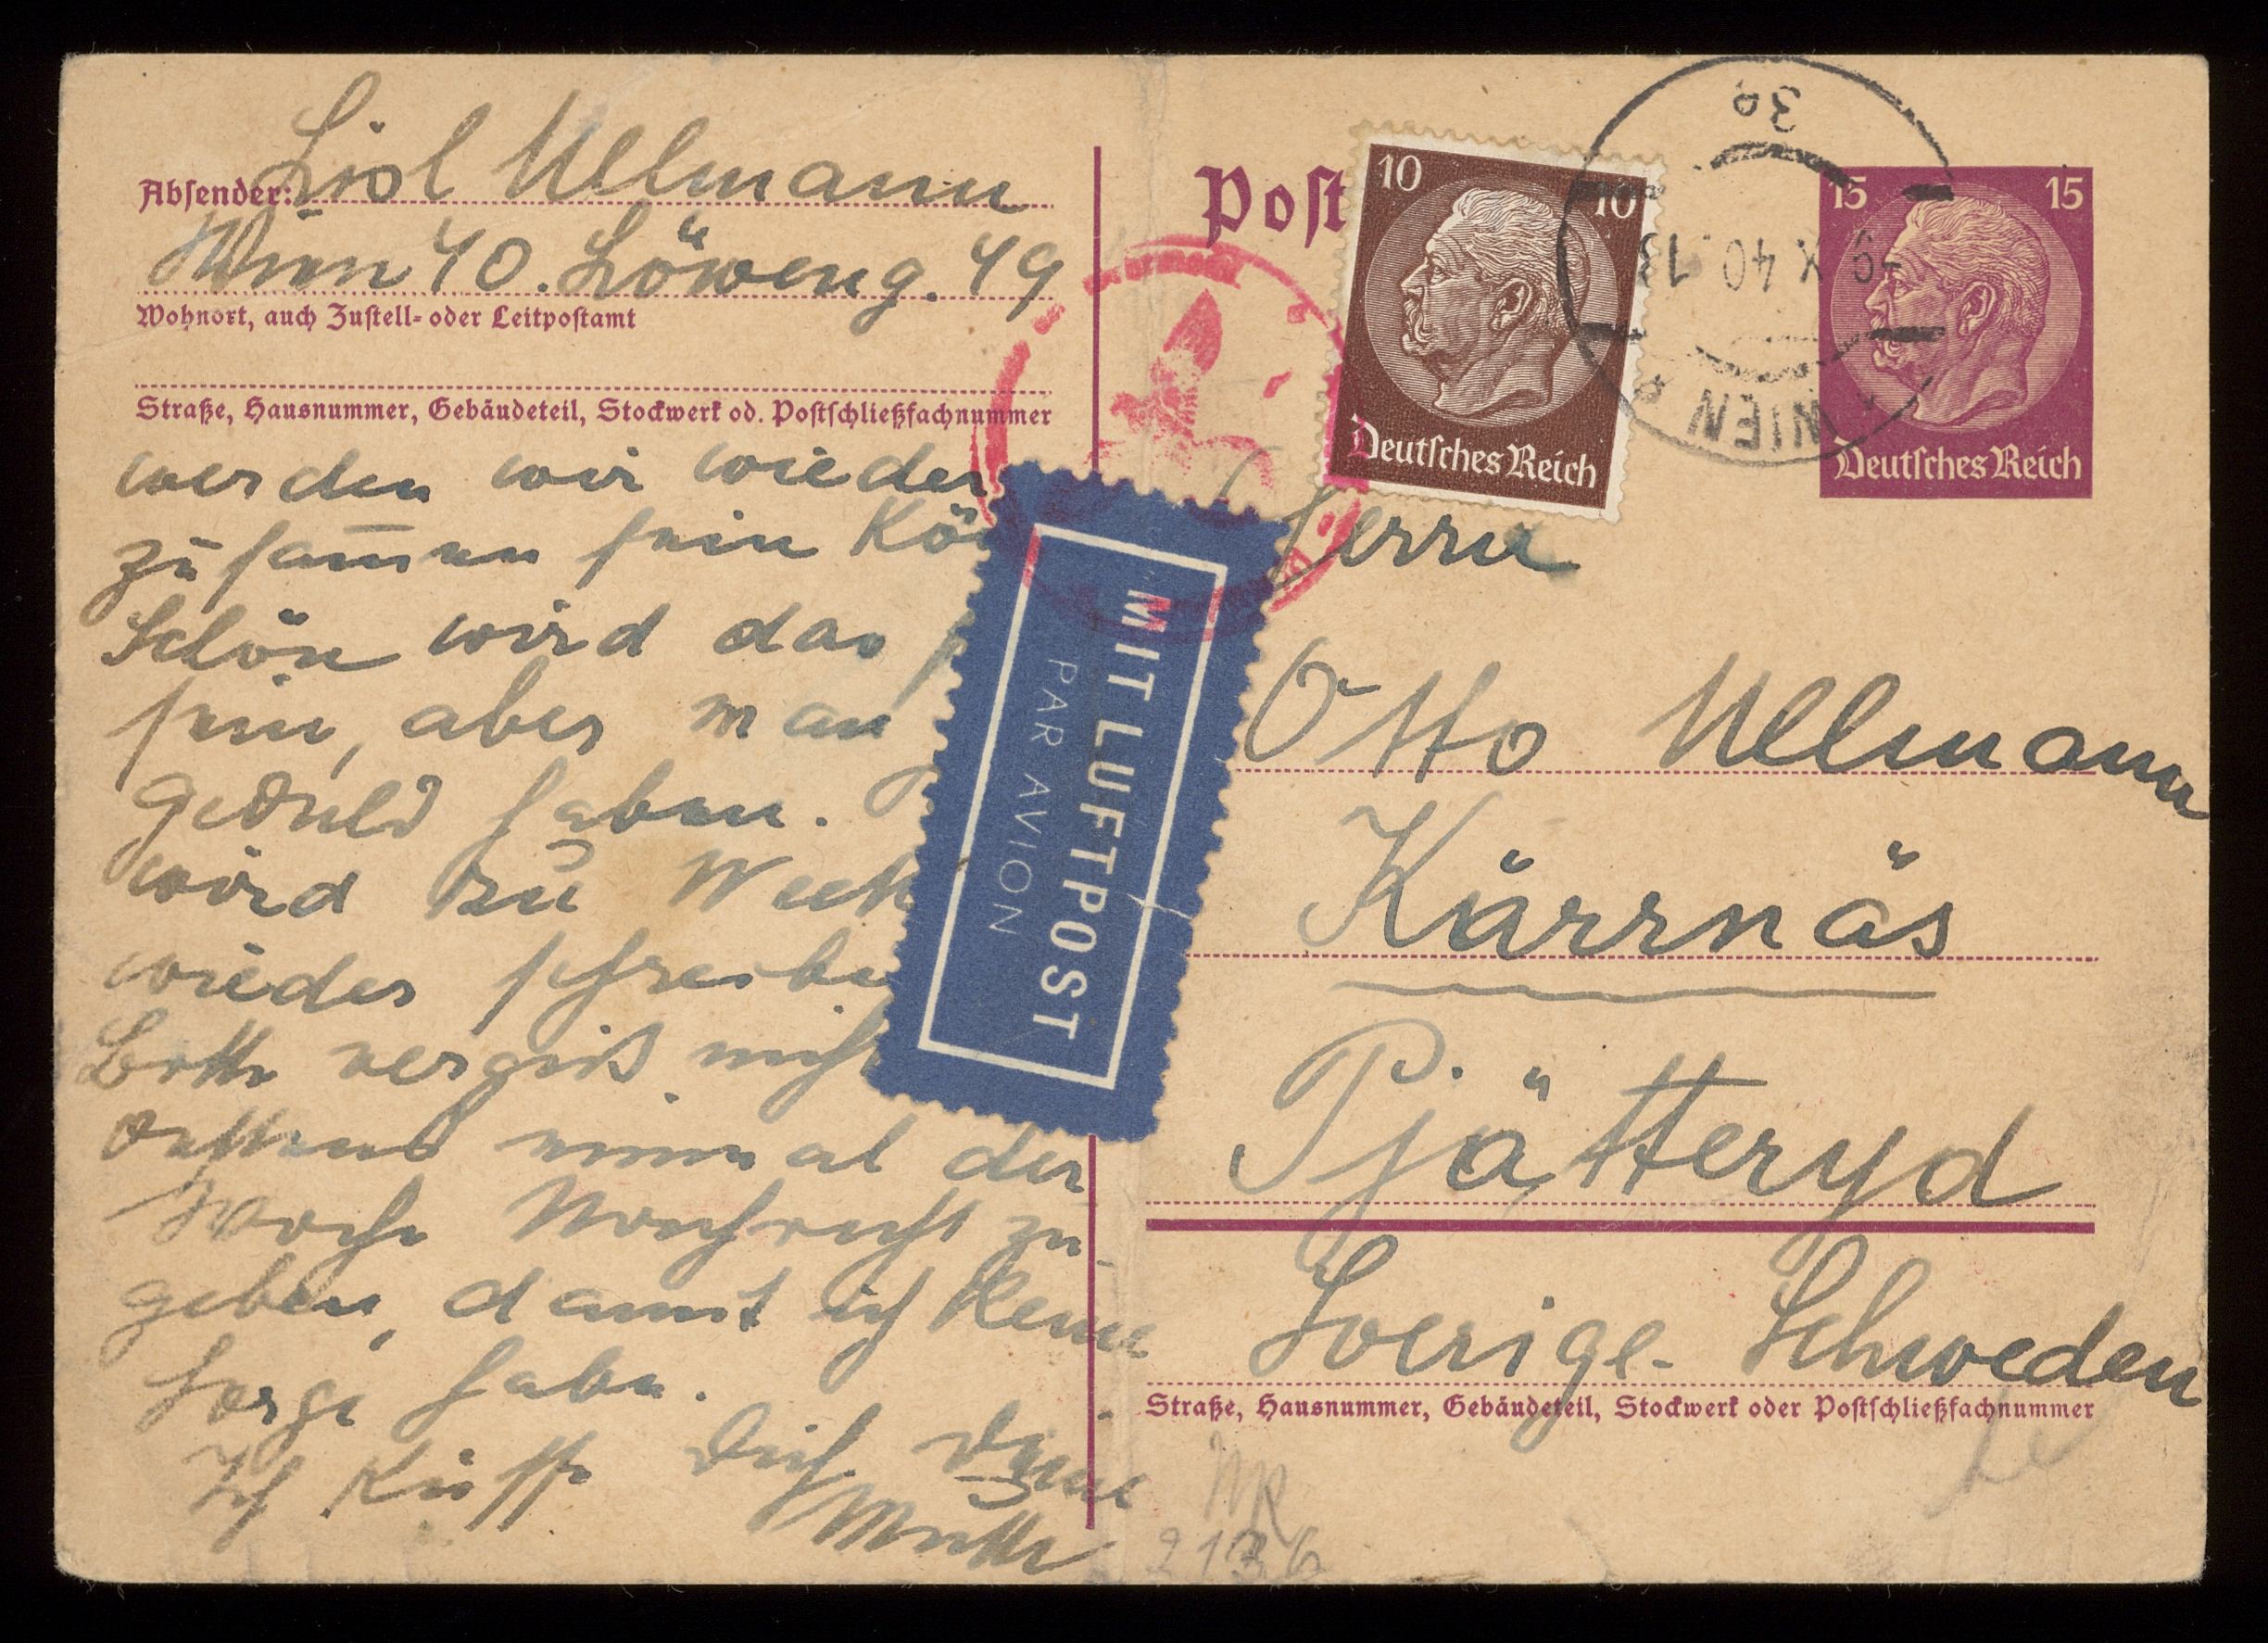 Absender: Lisl Ullmann
Wien 40. Löweng. 49
Wohnort, auch Zustell- oder Leitpostamt
Straße, Hausnummer, Gebäudeteil, Stockwerk od. Postschließfachnummer
werden wir wieder
zusam̄en sein Kön
Schön wird das
sein, aber man
geduld haben.
wird zu
wieder schreiben
Bitte vergiß nicht
einmal der
Woche Nachricht zu
geben, damit ich keine
Sorge habe.
Ich küsse Dich Deine
Mutti
Post
10 10
Deutsches Reich
15 15
Deutsches Reich
WIEN
9 X 40 13
MIT LUFTPOST
PAR AVION
Herrn
Otto Ullmann
Kärrnäs
Pjätteryd
Sverige - Schweden
Straße, Hausnummer, Gebäudeteil, Stockwerk oder Postschließfachnummer
2136